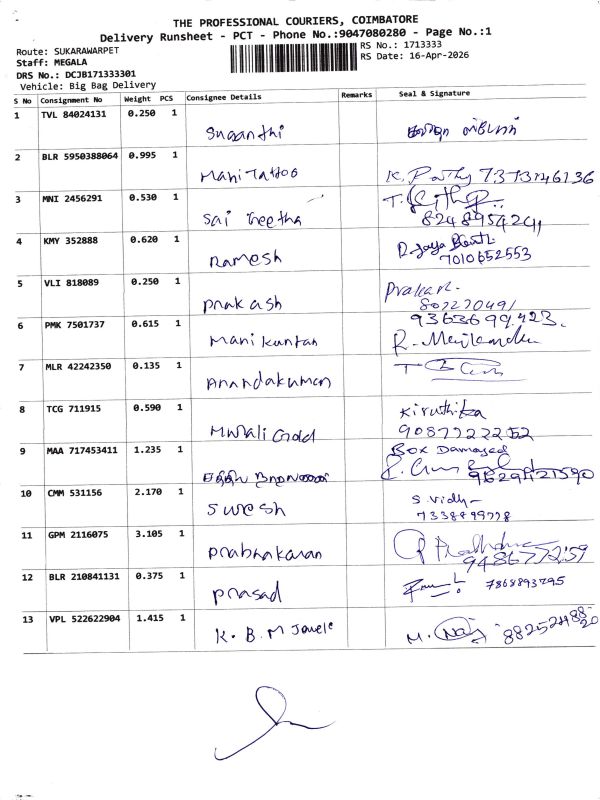 THE PROFESSIONAL COURIERS, COIMBATORE
Delivery Runsheet - PCT - Phone No.:9047080280 - Page No.:1
Route: SUKARAWARPET
RS No.: 1713333
Staff: MEGALA
RS Date: 16-Apr-2026
DRS No.: DCJB171333301
Vehicle: Big Bag Delivery
S No Consignment No Weight PCS Consignee Details Remarks Seal & Signature
1 TVL 84024131 0.250 1
Suganthi
2 BLR 5950388064 0.995 1
Mani Tattoo K. Parthy 7373146136
3 MNI 2456291 0.530 1
Sai Geetha 8248954241
4 KMY 352888 0.620 1
Ramesh 7010652553
5 VLI 818089 0.250 1
Prakash 807270491
6 PMK 7501737 0.615 1 9363699423.
Mani kuntan
7 MLR 42242350 0.135 1
Anandakumar
8 TCG 711915 0.590 1 Kiruthika
Murali Gold 9087722252
9 MAA 717453411 1.235 1 Box Damaged
10 CMM 531156 2.170 1 S. Vidhy
Suresh 7338899778
11 GPM 2116075 3.105 1
Prabhakaran 9486772159
12 BLR 210841131 0.375 1
Prasad 7868893795
13 VPL 522622904 1.415 1
K. B. M Jewels M.